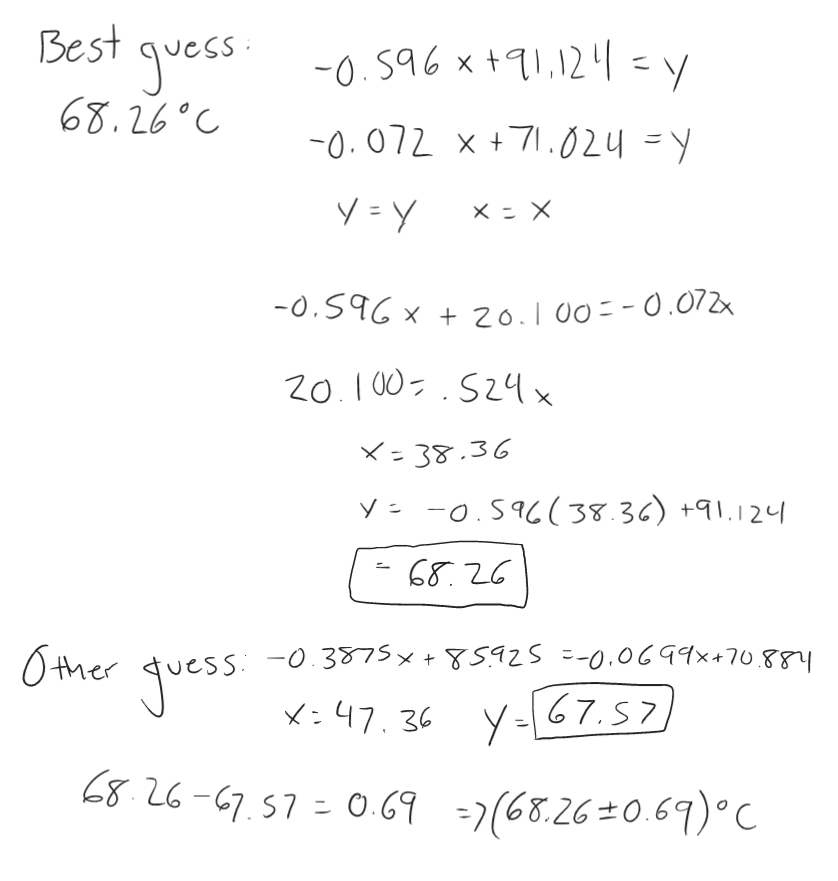 Best guess:
68.26°C
-0.596x+91.124=y
-0.072x+71.024=y
y=y x=x
-0.596x+20.100=-0.072x
20.100=.524x
x=38.36
y=-0.596(38.36)+91.124
=68.26
Other guess: -0.3875x+85.925=-0.0699x+70.884
x=47.36 y=67.57
68.26-67.57=0.69 =>(68.26±0.69)°C